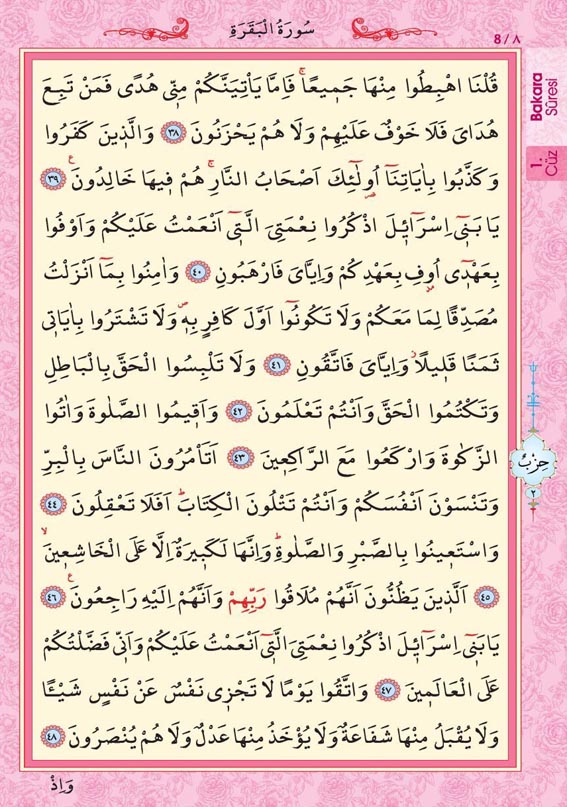 سُورَةُ الْبَقَرَةِ
8 / ٨
قُلْنَا اهْبِطُوا مِنْهَا جَمٖيعًاۚ فَاِمَّا يَأْتِيَنَّكُمْ مِنّٖي هُدًى فَمَنْ تَبِعَ
هُدَايَ فَلَا خَوْفٌ عَلَيْهِمْ وَلَا هُمْ يَحْزَنُونَ ﴿٣٨﴾ وَالَّذٖينَ كَفَرُوا
وَكَذَّبُوا بِاٰيَاتِنَٓا اُو۬لٰٓئِكَ اَصْحَابُ النَّارِۚ هُمْ فٖيهَا خَالِدُونَࣖ ﴿٣٩﴾
يَا بَنٖٓي اِسْرَٓائٖلَ اذْكُرُوا نِعْمَتِيَ الَّتٖٓي اَنْعَمْتُ عَلَيْكُمْ وَاَوْفُوا
بِعَهْدٖٓي اُو۫فِ بِعَهْدِكُمْ وَاِيَّايَ فَارْهَبُونِ ﴿٤٠﴾ وَاٰمِنُوا بِمَٓا اَنْزَلْتُ
مُصَدِّقًا لِمَا مَعَكُمْ وَلَا تَكُونُٓوا اَوَّلَ كَافِرٍ بِهٖۖ وَلَا تَشْتَرُوا بِاٰيَاتٖي
ثَمَنًا قَلٖيلًاۘ وَاِيَّايَ فَاتَّقُونِ ﴿٤١﴾ وَلَا تَلْبِسُوا الْحَقَّ بِالْبَاطِلِ
وَتَكْتُمُوا الْحَقَّ وَاَنْتُمْ تَعْلَمُونَ ﴿٤٢﴾ وَاَقٖيمُوا الصَّلٰوةَ وَاٰتُوا
الزَّكٰوةَ وَارْكَعُوا مَعَ الرَّاكِعٖينَ ﴿٤٣﴾ اَتَأْمُرُونَ النَّاسَ بِالْبِرِّ
وَتَنْسَوْنَ اَنْفُسَكُمْ وَاَنْتُمْ تَتْلُونَ الْكِتَابَۜ اَفَلَا تَعْقِلُونَ ﴿٤٤﴾
وَاسْتَعٖينُوا بِالصَّبْرِ وَالصَّلٰوةِۜ وَاِنَّهَا لَكَبٖيرَةٌ اِلَّا عَلَى الْخَاشِعٖينَۙ
﴿٤٥﴾ اَلَّذٖينَ يَظُنُّونَ اَنَّهُمْ مُلَاقُوا رَبِّهِمْ وَاَنَّهُمْ اِلَيْهِ رَاجِعُونَࣖ ﴿٤٦﴾
يَا بَنٖٓي اِسْرَٓائٖلَ اذْكُرُوا نِعْمَتِيَ الَّتٖٓي اَنْعَمْتُ عَلَيْكُمْ وَاَنّٖي فَضَّلْتُكُمْ
عَلَى الْعَالَمٖينَ ﴿٤٧﴾ وَاتَّقُوا يَوْمًا لَا تَجْزٖي نَفْسٌ عَنْ نَفْسٍ شَيْـًٔا
وَلَا يُقْبَلُ مِنْهَا شَفَاعَةٌ وَلَا يُؤْخَذُ مِنْهَا عَدْلٌ وَلَا هُمْ يُنْصَرُونَ ﴿٤٨﴾
وَاِذْ
Bakara
Sûresi
1.
Cüz
حِزْبٌ
٢